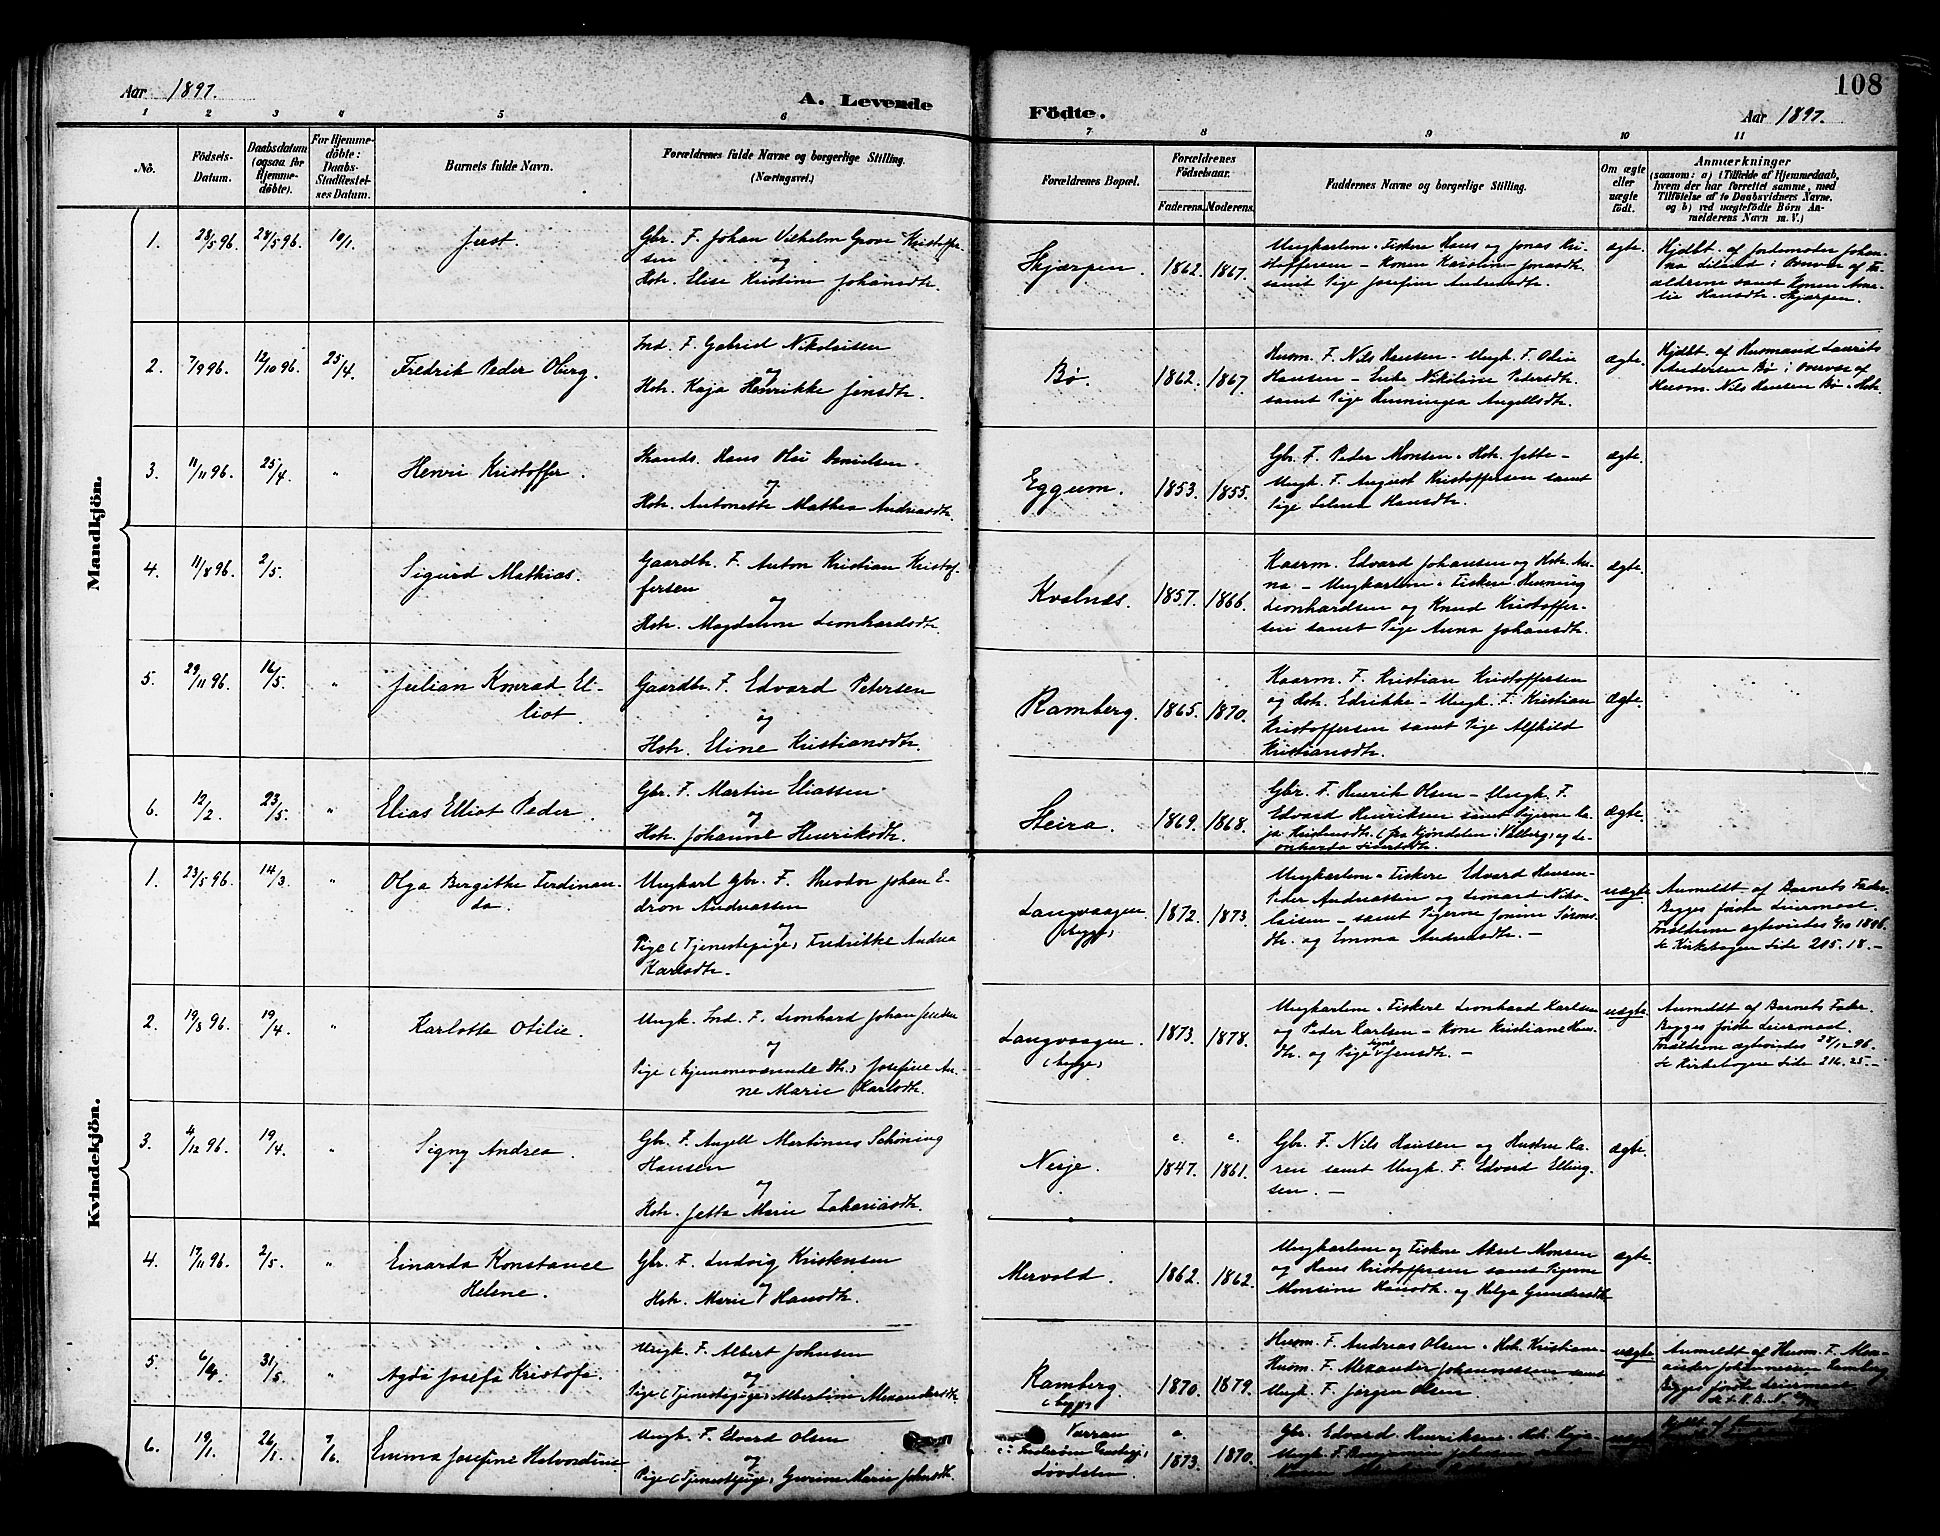 108
Aar 1897.
A. Levende
Födte.
Aar 1897.
1 2 3 4 5 6 7 8 9 10 11
No.
Födsels-
Datum.
Daabsdatum
(ogsaa for
Hjemme-
döbte).
For Hjemme-
döbte:
Daabs-
Stadfæstel-
ses Datum.
Barnets fulde Navn.
Forældrenes fulde Navne og borgerlige Stilling.
(Næringsvei.)
Forældrenes Bopæl.
Forældrenes
Födselsaar.
Faderens. Moderens.
Faddernes Navne og borgerlige Stilling.
Om ægte
eller
uægte
födt.
Anmærkninger
(saasom: a) i Tilfælde af Hjemmedaab,
hvem der har forrettet samme, med
Tilföielse af to Daabsvidners Navne,
og b) ved uægtefödte Börn An-
melderens Navn m. V.)
Mandkjön.
1. 28/5 96. 28/5 96. 10/1. Just.
Gbr. F. Johan Vilhelm Grove Kristoffer-
sen
og
Hstr. Elise Kristine Johansdtr.
Skjærpen. 1862. 1867.
Ungkarlene Fiskere Hans og Jonas Kri-
stoffersen – Konen Karoline Jonasdtr.
samt Pige Josefine Andreasdtr.
ægte.
Hjdbt. af Jordemoder Johan-
na Liland i Overvær af For-
ældrene samt Konen Ama-
lie Hansdtr. Skjærpen.
2. 7/9 96. 12/10 96. 25/4. Fredrik Peder Oberg.
Ind. F. Gabriel Nikolaisen
og
Hstr. Kaja Henrikke Jensdtr.
Bø. 1862. 1867.
Husm. F. Nils Hansen – Ungk. F. Olai
Hansen – Enke Nikoline Pedersdtr.
samt Pige Henningea Angellsdtr.
ægte.
Hjdbt. af Husmand Laurits
Andersen Bø i Overvær af
Husm. Nils Hansen Bø & Hstr.
3. 11/11 96. 25/4. " Henri Kristoffer.
Strands. Hans Olai Danielsen
og
Hstr. Antonette Mathea Andreasdtr.
Eggum. 1853. 1855.
Gbr. F. Peder Monsen & Hstr. Jette –
Ungk. F. August Kristoffersen samt
Pige Selma Hansdtr.
ægte.
4. 11/8 96. 2/5. Sigurd Mathias.
Gaardbr. F. Anton Kristian Kristof-
fersen
og
Hstr. Magdalene Leonhardsdtr.
Kvalnæs. 1857. 1866.
Kaarm. Edvard Johansen og Hstr. An-
na – Ungkarlene Fiskere Henning
Leonhardsen og Knud Kristoffer-
sen samt Pige Anna Johansdtr.
ægte.
5. 29/11 96. 16/5. " Julian Konrad El-
liot.
Gaardbr. F. Edvard Petersen
og
Hstr. Eline Kristiansdtr.
Ramberg. 1865. 1870.
Kaarm. F. Kristian Kristoffersen
og Hstr. Edrikke – Ungk. F. Kristian
Kristoffersen samt Pige Alfhild
Kristiansdtr.
ægte.
6. 12/2. 23/5. " Elias Elliot Peder.
Gbr. F. Martin Eliassen
og
Hstr. Johanne Henriksdtr.
Steira. 1869. 1868.
Gbr. F. Henrik Olsen – Ungk. F.
Edvard Henriksen samt Pigerne Ka-
ja Kristensdtr. (fra Kjøndalen i Valberg) og Le-
onharda Sivertsdtr.
ægte.
Kvindekjön.
1. 23/5 96. 14/3. " Olga Bergitte Ferdinan-
da.
Ungkarl Gbr. F. Theodor Johan E-
dron Andreassen
og
Pige (Tjenestepige) Fredrikke Andrea
Karlsdtr.
Langvaagen
(begge) 1872. 1873.
Ungkarlene Fiskere Edvard Hansen
Peder Andreassen og Leonard Niko-
laisen – samt Pigerne Jonine Sørens-
dtr. og Emma Andreasdtr. –
uægte.
Anmeldt af Barnets Fader.
Begges første Leiermaal.
Forældrene ægteviedes 4/10 1896.
se Kirkebogen Side 215. 18. –
2. 19/8 96. 19/4. " Karlotte Otilie.
Ungk. Ind. F. Leonhard Johan Jensen
og
Pige (hjemmeværende Dtr.) Josefine An-
ne Marie Karlsdtr.
Langvaagen.
(begge) 1873. 1878.
Ungkarlene Fiskere Leonhard Karlsen
og Peder Karlsen – Kone Kristiane Hans-
dtr. og Pige Signe Jensdtr. –
uægte.
Anmeldt af Barnets Fader.
Begges første Leiermaal.
Forældrene ægteviedes 28/12 96.
se Kirkebogen Side 216. 25. –
3. 4/12 96. 19/4. " Signy Andrea.
Gbr. F. Angell Martinus Schøning
Hansen
og
Hstr. Jetta Marie Zakariasdtr.
Nesje. c. 1847. c. 1861.
Gbr. F. Nils Hansen og Hustru Ka-
ren samt Ungk. F. Edvard Elling-
sen. –
ægte.
4. 17/11 96. 2/5. " Einarda Konstance
Helene.
Gbr. F. Ludvig Kristensen
og
Hstr. Marie Hansdtr.
Mervold. 1862. 1862.
Ungkarlene og Fiskere Aksel Monsen
og Hans Kristoffersen samt Pigerne
Monsine Hansdtr. og Helga Gundersdtr
ægte.
5. 6/4. 31/5. " Agda Josefa Kristofa.
Ungk. F. Albert Johnsen
og
Pige (Tjenestepige) Albertine Alexandersdtr.
Ramberg.
(begge) 1870. 1879.
Husm. F. Andreas Olsen & Hstr. Kristiane –
Husm. F. Alexander Johannessen samt
Ungk. F. Jørgen Olsen.
uægte
Anmeldt af Husm. F. Alex-
ander Johannessen Ramberg
Begges første Leiermaal
6. 19/1. 26/1. 7/6. Emma Josefine Halvordine
Ungk. F. Edvard Olsen
og
Pige (Tjenestepige) Gurine Marie Johnsdtr.
Værran
Løvdalen
c. 1873. 1870.
Gbr. Edvard Henriksen
Ungk. F. Benjamin Johansen
uægte